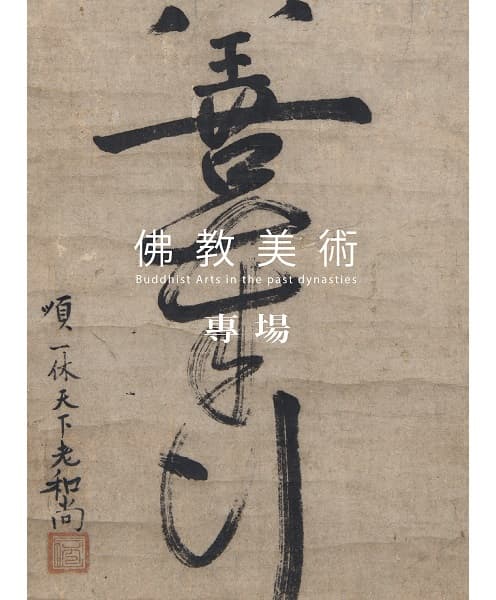 善奉行
佛教美術
Buddhist Arts in the past dynasties
專場
順一休天下老和尚